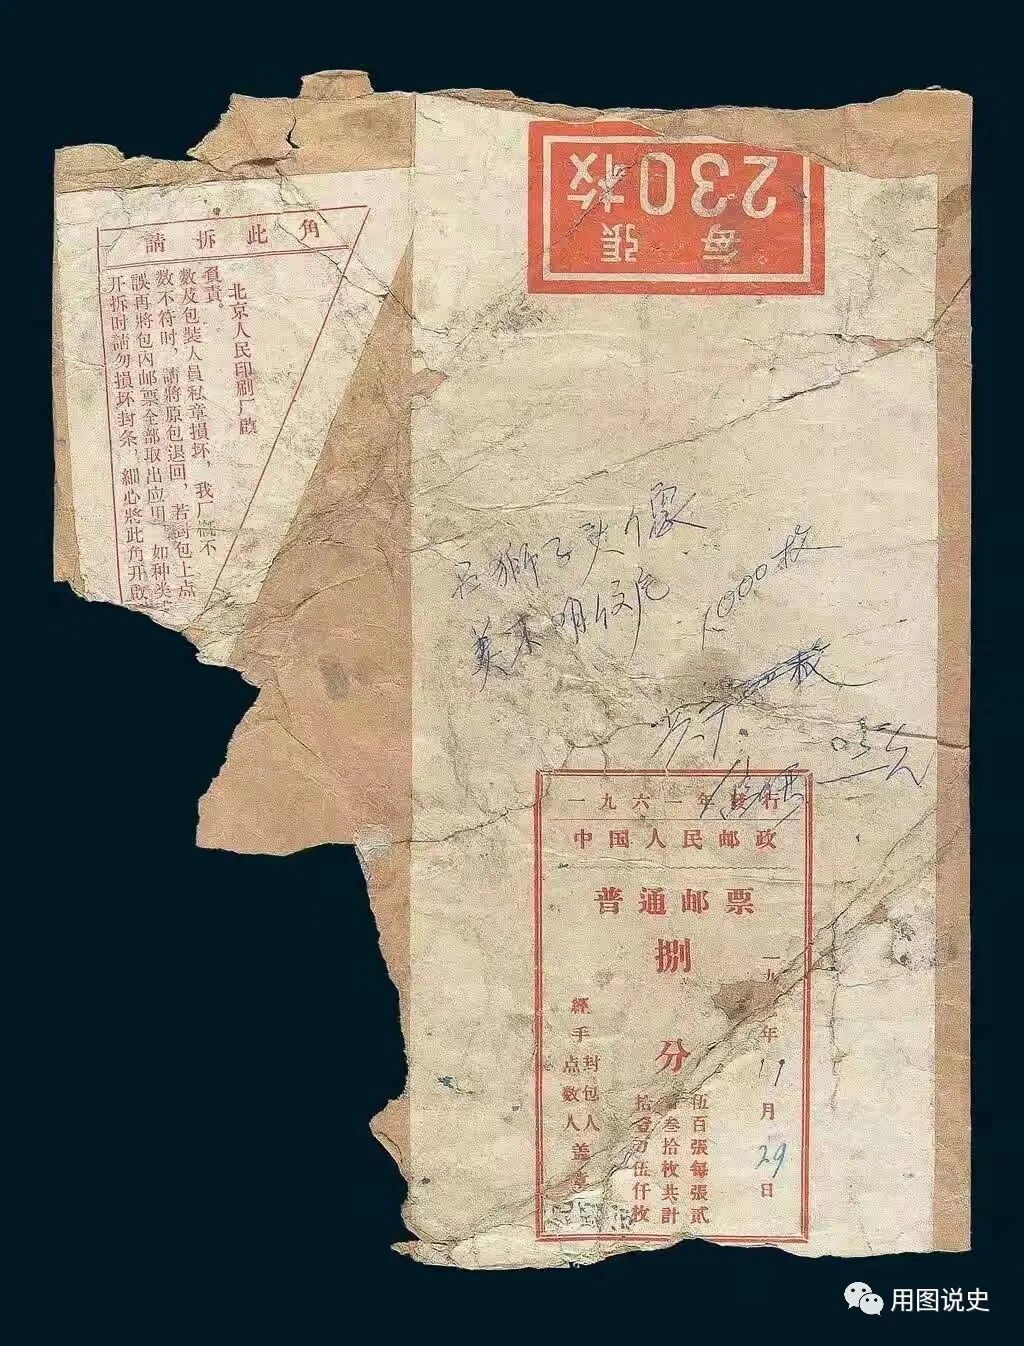 每張
230枚
請拆此角
开拆时請勿損坏封条，細心將此角开啟
誤再將包內邮票全部取出应用。如种类
数不符时，請將原包退回，若封包上点
数及包装人員私章損坏，我厂概不
負責。
北京人民印刷厂啟
1000枚
一九六一年发行
中国人民邮政
普通邮票
捌分
一九 年11月29日
伍百張每張貳
叁拾枚共計
拾壹万伍仟枚
經手
封包人
点数人
盖章
用图说史